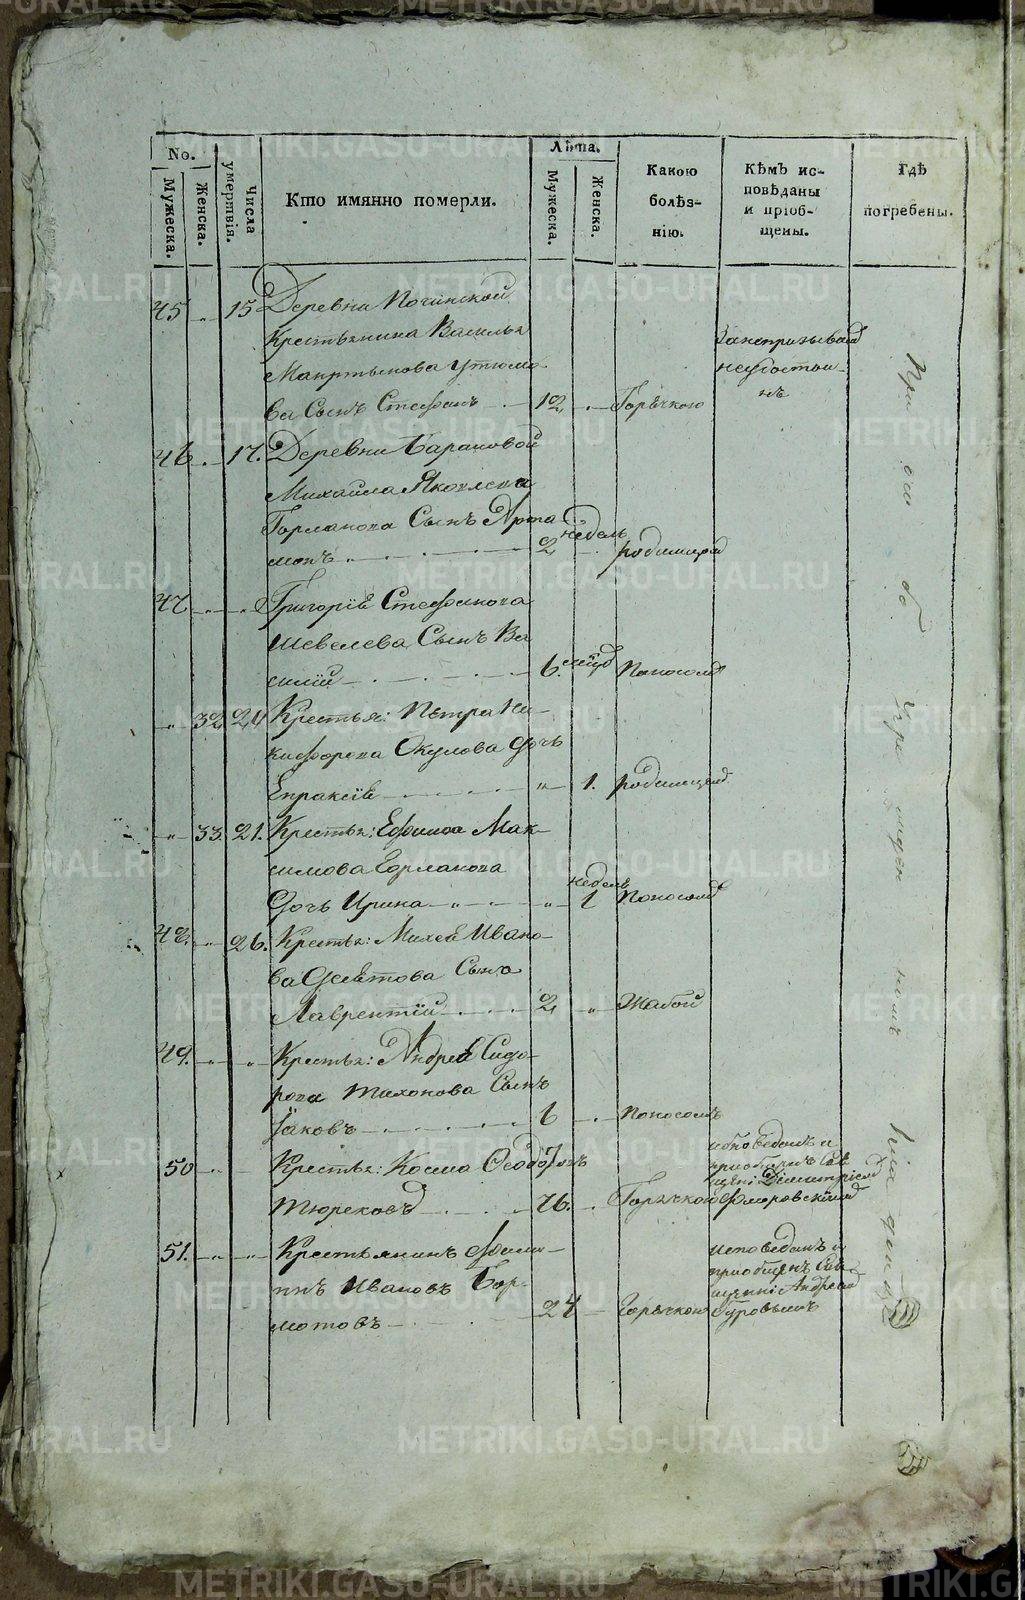 No.
Мужеска.
Женска.
Числа умертвія.
Кто имянно померли.
Лѣта.
Мужеска.
Женска.
Какою болѣз-
нію.
Кѣмъ ис-
повѣданы
и пріоб-
щены.
Гдѣ
погребены.
45 " 15 Деревни Починской
Крестьянина Василья
Мартынова Утюмо-
ва Сынъ Стефанъ 12 Горячкою
46 " 17. Деревни Барановой
Михаила Яковлева
Горланова Сынъ Арта
монъ 2 недель родимцомъ
47 " " Григорія Стефанова
Шевелева Сынъ Ва
силій 6. Поносомъ
" 32 21 Крестья: Петра Ни-
кифорова Окулова дочь
Епраксія " 1. родимцемъ
" 33. 21. Крестья: Ефима Мак-
симова Горланова
Дочь Ирина " 1 недель Поносомъ
48. " 26. Крестья: Михея Ивано-
ва Сынъ
Лаврентій 2 " Жабой
49. " " Крестья: Андрея Сидо-
рова Тихонова Сынъ
Іаковъ 6 Поносомъ
50 Крестья: Косма Ѳеодоровъ
Тюрековъ 76. Горячкою
исповеданъ и
приобщенъ Свя
щені Димитріемъ
Флоровскимъ
51. " " Крестьянинъ Фили-
ппъ Ивановъ Бор-
мотовъ 24 Горячкою
исповеданъ и
приобщенъ Свя
щенни Андреемъ
Суровымъ
При
METRIKI.GASO-URAL.RU